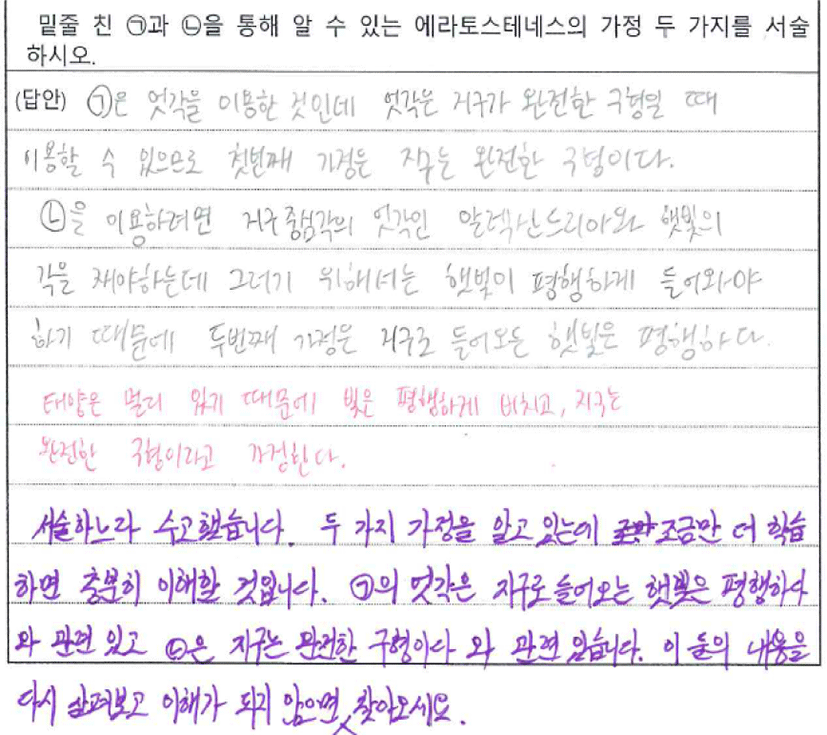 밑줄 친 ㉠과 ㉡을 통해 알 수 있는 에라토스테네스의 가정 두 가지를 서술
하시오.
(답안) ㉠은 엇각을 이용한 것인데 엇각은 지구가 완전한 구형일 때
이용할 수 있으므로 첫번째 가정은 지구는 완전한 구형이다.
㉡을 이용하려면 지구 중심각의 엇각인 알렉산드리아와 햇빛의
각을 재야하는데 그러기 위해서는 햇빛이 평행하게 들어와야
하기 때문에 두번째 가정은 지구로 들어오는 햇빛은 평행하다.
태양은 멀리 있기 때문에 빛은 평행하게 비치고, 지구는
완전한 구형이라고 가정한다.
서술하느라 수고했습니다. 두 가지 가정을 알고 있는데 조금만 더 학습
하면 충분히 이해할 것입니다. ㉠의 엇각은 지구로 들어오는 햇빛은 평행하다
와 관련 있고 ㉡은 지구는 완전한 구형이다 와 관련 있습니다. 이 둘의 내용을
다시 살펴보고 이해가 되지 않으면 찾아오세요.